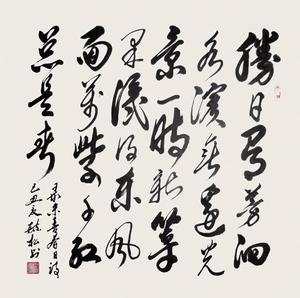 勝日尋芳泗
水濱無邊光
景一時新等
閒識得東風
面萬紫千紅
總是春
录朱熹春日詩
己丑夏松书